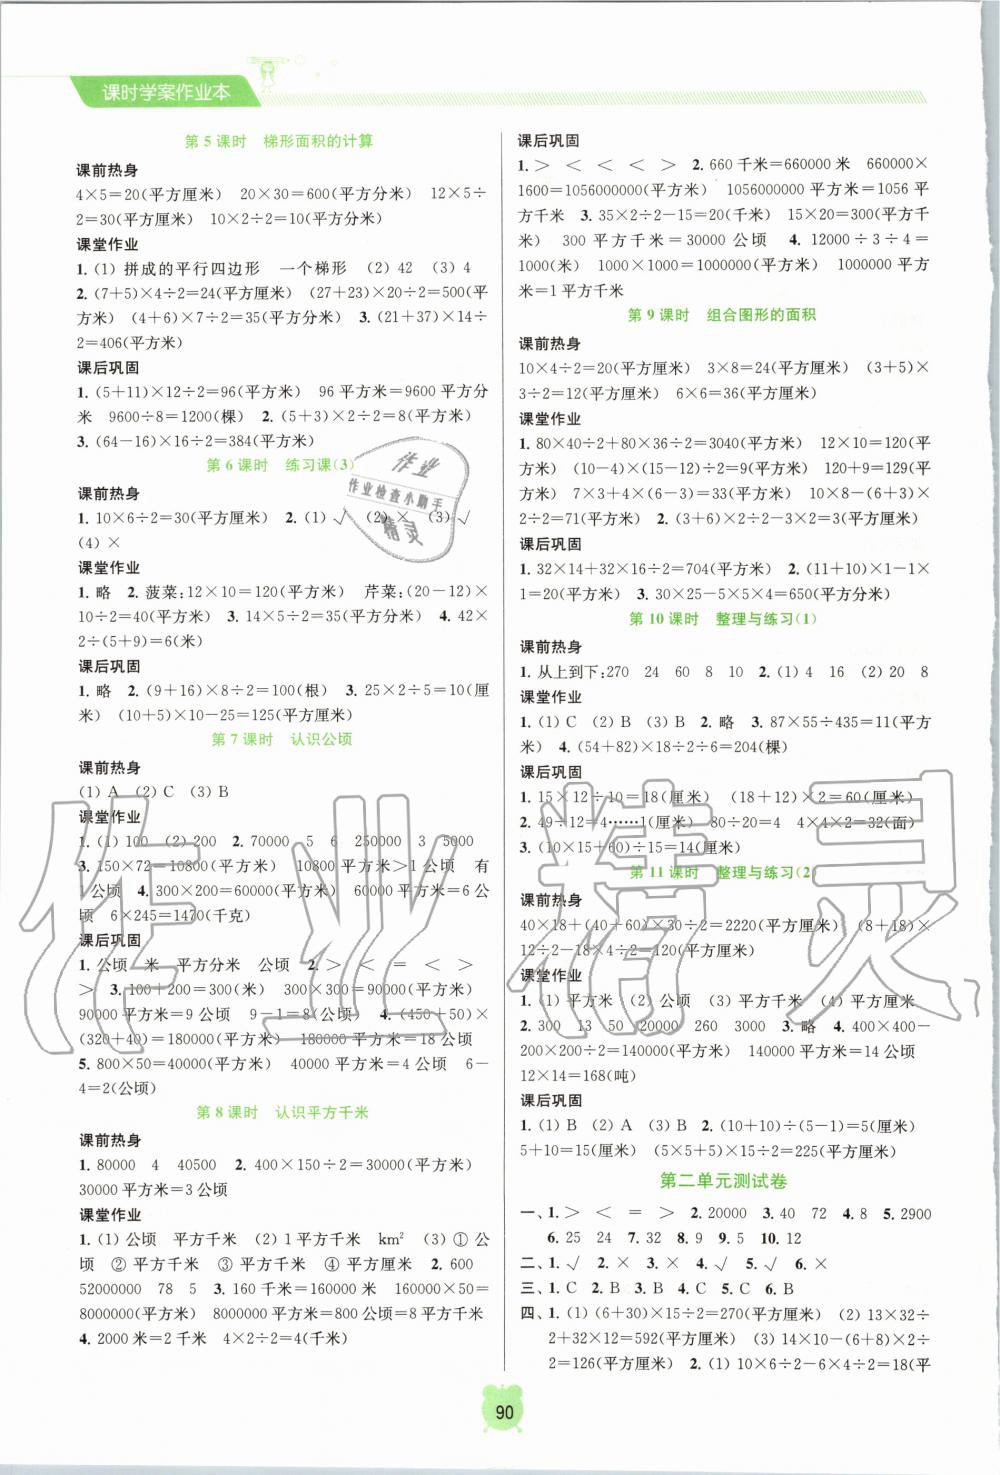 课时学案作业本
第5课时 梯形面积的计算
课前热身
4×5=20(平方厘米) 20×30=600(平方分米) 12×5÷
2=30(平方厘米) 10×2÷2=10(平方分米)
课堂作业
1. (1) 拼成的平行四边形 一个梯形 (2) 42 (3) 4
2. (7+5)×4÷2=24(平方厘米) (27+23)×20÷2=500(平
方米) (4+6)×7÷2=35(平方分米) 3. (21+37)×14÷
2=406(平方米)
课后巩固
1. (5+11)×12÷2=96(平方米) 96 平方米=9600 平方分
米 9600÷8=1200(棵) 2. (5+3)×2÷2=8(平方米)
3. (64-16)×16÷2=384(平方米)
第6课时 练习课(3)
课前热身
1. 10×6÷2=30(平方厘米) 2. (1) √ (2) × (3) √
(4) ×
课堂作业
1. 略 2. 菠菜:12×10=120(平方米) 芹菜:(20-12)×
10÷2=40(平方米) 3. 14×5÷2=35(平方分米) 4. 42×
2÷(5+9)=6(米)
课后巩固
1. 略 2. (9+16)×8÷2=100(根) 3. 25×2÷5=10(厘
米) (10+5)×10-25=125(平方厘米)
第7课时 认识公顷
课前热身
(1) A (2) C (3) B
课堂作业
1. (1) 100 (2) 200 2. 70000 5 6 250000 3 5000
3. 150×72=10800(平方米) 10800 平方米>1 公顷 有
1 公顷 4. 300×200=60000(平方米) 60000 平方米=6 公
顷 6×245=1470(千克)
课后巩固
1. 公顷 米 平方分米 公顷 2. > < = < >
> 3. 100+200=300(米) 300×300=90000(平方米)
90000 平方米=9 公顷 9-1=8(公顷) 4. (450+50)×
(320+40)=180000(平方米) 180000 平方米=18 公顷
5. 800×50=40000(平方米) 40000 平方米=4 公顷 6-
4=2(公顷)
第8课时 认识平方千米
课前热身
1. 80000 4 40500 2. 400×150÷2=30000(平方米)
30000 平方米=3 公顷
课堂作业
1. (1) 公顷 平方千米 (2) 1 平方千米 km² (3) ① 公
顷 ② 平方千米 ③ 平方千米 ④ 平方厘米 2. 600
52000000 78 5 3. 160 千米=160000 米 160000×50=
8000000(平方米) 8000000 平方米=800 公顷=8 平方千米
4. 2000 米=2 千米 4×2÷2=4(千米)
课后巩固
1. > < < < > 2. 660 千米=660000 米 660000×
1600=1056000000(平方米) 1056000000 平方米=1056 平
方千米 3. 35×2÷2-15=20(千米) 15×20=300(平方千
米) 300 平方千米=30000 公顷 4. 12000÷3÷4=
1000(米) 1000×1000=1000000(平方米) 1000000 平方
米=1 平方千米
第9课时 组合图形的面积
课前热身
10×4÷2=20(平方厘米) 3×8=24(平方厘米) (3+5)×
3÷2=12(平方厘米) 6×6=36(平方厘米)
课堂作业
1. 80×40÷2+80×36÷2=3040(平方米) 12×10=120(平
方米) (10-4)×(15-12)÷2=9(平方米) 120+9=129(平
方米) 7×3+4×(6-3)=33(平方厘米) 10×8-(6+2)×
2÷2=71(平方厘米) 2. (3+6)×2÷2-3×2=3(平方厘米)
课后巩固
1. 32×14+32×16÷2=704(平方米) 2. (11+10)×1-1×
1=20(平方米) 3. 30×25-5×5×4=650(平方分米)
第10课时 整理与练习(1)
课前热身
1. 从上到下:270 24 60 8 10 2. (1) 4 16 (2) 20 8
课堂作业
1. (1) C (2) B (3) B 2. 略 3. 87×55÷435=11(平方
米) 4. (54+82)×18÷2÷6=204(棵)
课后巩固
1. 15×12÷10=18(厘米) (18+12)×2=60(厘米)
2. 49÷12=4……1(厘米) 80÷20=4 4×4×2=32(面)
3. (10×15+60)÷15=14(厘米)
第11课时 整理与练习(2)
课前热身
40×18+(40+60)×30÷2=2220(平方厘米) (8+18)×
12÷2-18×4÷2=120(平方厘米)
课堂作业
1. (1) 平方米 (2) 公顷 (3) 平方千米 (4) 平方厘米
2. 300 13 50 20000 260 3000 3. 略 4. 400×400-
200×200÷2=140000(平方米) 140000 平方米=14 公顷
12×14=168(吨)
课后巩固
1. (1) B (2) A (3) B 2. (10+10)÷(5-1)=5(厘米)
5+10=15(厘米) (5×5+15×15)÷2=225(平方厘米)
第二单元测试卷
一、1. > < = > 2. 20000 3. 40 72 4. 8 5. 2900
6. 25 24 7. 32 8. 9 9. 5 10. 12
二、1. √ 2. × 3. × 4. √ 5. √ 6. ×
三、1. C 2. B 3. B 4. C 5. C 6. B
四、1. (1) (6+30)×15÷2=270(平方厘米) (2) 13×32÷
2+32×12=592(平方厘米) (3) 14×10-(6+8)×2÷
2=126(平方厘米) 2. (1) 10×6÷2-6×4÷2=18(平
90
作业
作业检查小助手
精灵
作业精灵